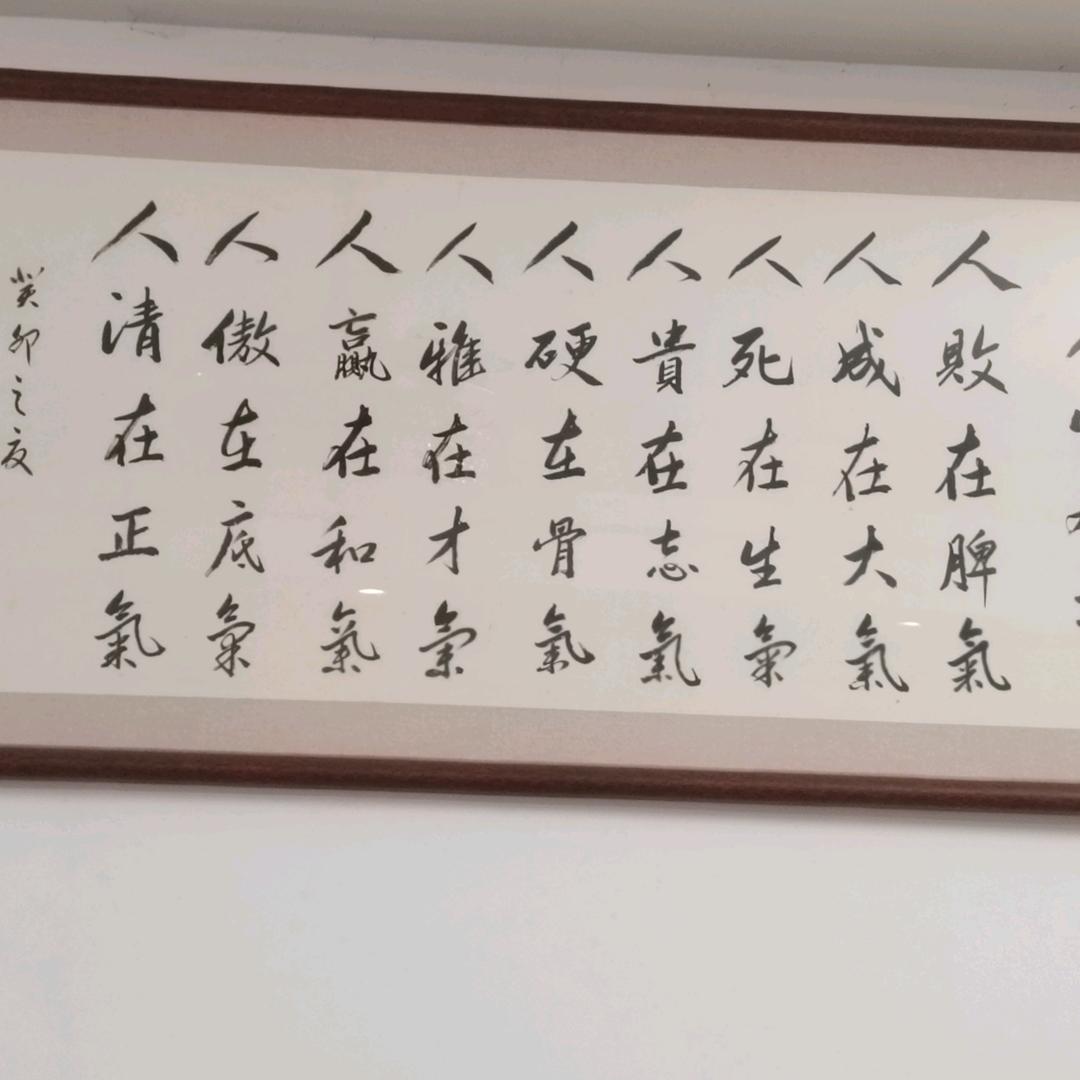 人敗在脾氣
人成在大氣
人死在生氣
人貴在志氣
人硬在骨氣
人雅在才氣
人贏在和氣
人傲在底氣
人清在正氣
癸卯之夏